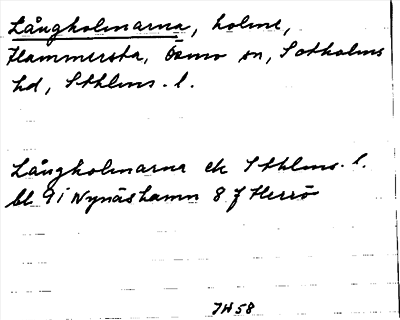 Långholmarna, holme,
Hammersta, Ösmo sn, Sotholms
hd, Sthlms. l.
Långholmarna ek Sthlms. l.
bl. 9i Nynäshamn 8 f Herrö
JW58